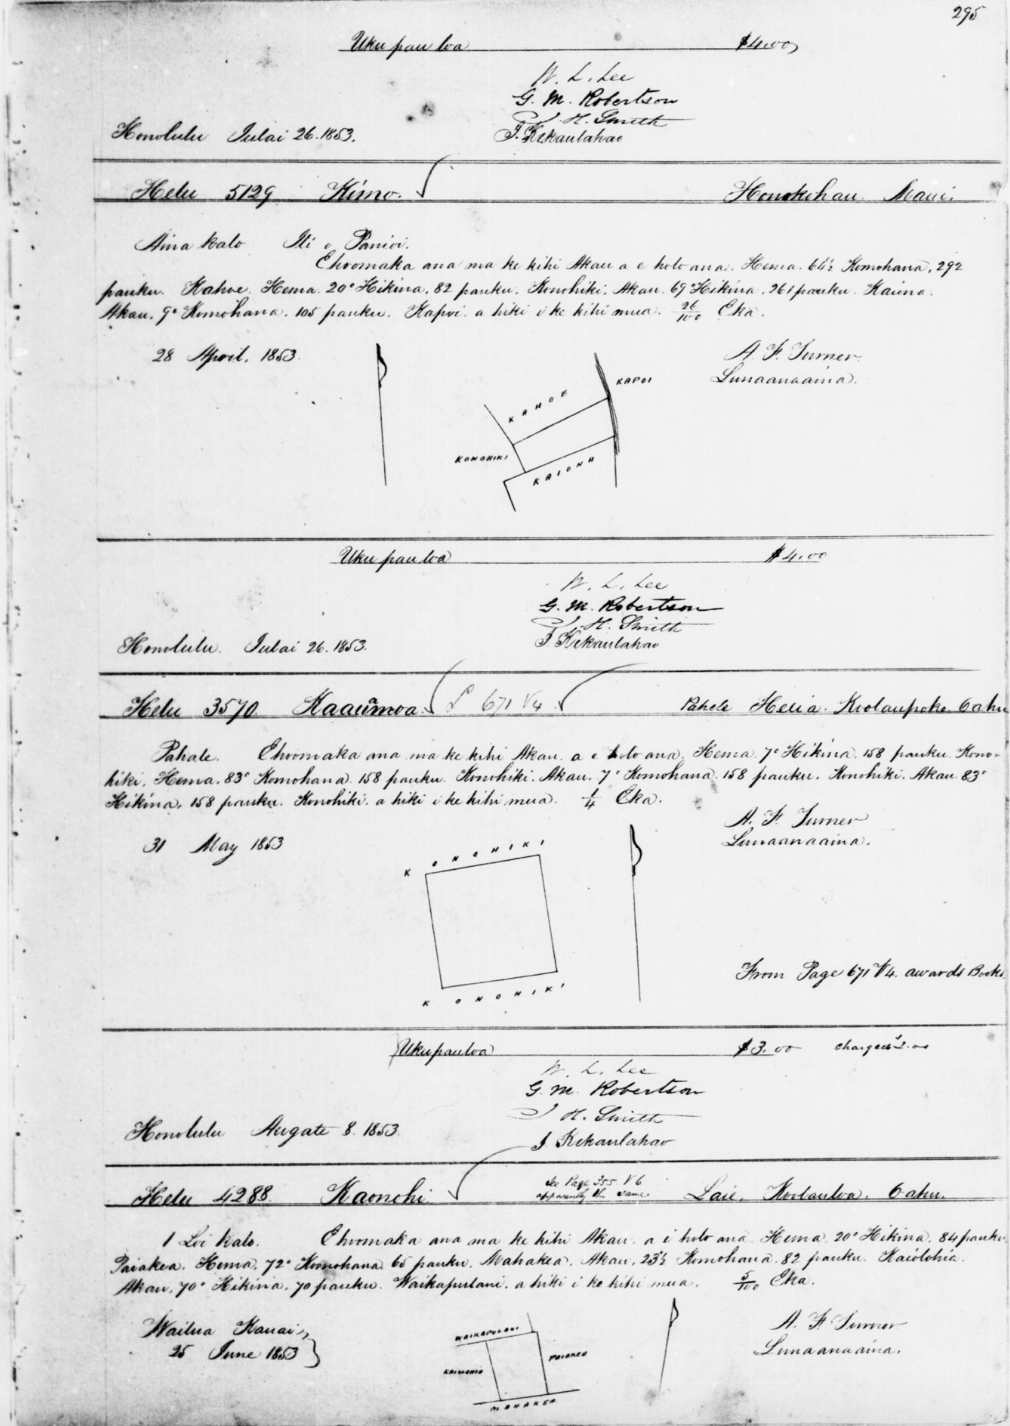 295
Uku pau loa $4.00
W. L. Lee
G. M. Robertson
J. H. Smith
Honolulu Iulai 26. 1853. J. Kekaulahao
Helu 5129 Kimo. Honokohau Maui.
Aina kalo Ili o Panioi.
Ehoomaka ana ma ke kihi Akau a e holo ana. Hema. 64½ Komohana, 292
pauku. Kahoe. Hema. 20° Hikina. 82 pauku. Konohiki. Akau. 69 Hikina. 261 pauku. Kaiona.
Akau. 9° Komohana. 105 pauku. Kapoi. a hiki i ke kihi mua. 26/100 Eka.
28 April. 1853. A. F. Turner.
Lunaanaaina.
KAPOI
KAHOE
KONOHIKI
KAIONA
Uku pau loa $4.00
W. L. Lee
G. M. Robertson
J. H. Smith
Honolulu. Iulai 26. 1853. J Kekaulahao
Helu 3570 Kaaumoa. 671 V4. Pahele Heeia. Koolaupoko. Oahu
Pahale. Ehoomaka ana ma ke kihi Akau. a e holo ana. Hema 7° Hikina. 158 pauku. Kono-
hiki. Hema. 83° Komohana. 158 pauku. Konohiki. Akau. 7° Komohana. 158 pauku. Konohiki. Akau 83°
Hikina, 158 pauku. Konohiki. a hiki i ke kihi mua. 1/4 Eka.
A. F. Turner
31 May 1853 Lunaanaaina.
KONOHIKI
KONOHIKI
From Page 671 V4. awards Books.
Uku pau loa $3.00
W. L. Lee
G. M. Robertson
J H. Smith
Honolulu Augate 8. 1853. J. Kekaulahao
Helu 4288. Kaonohi See Page 355 V6 apparently the same Laie. Koolauloa. Oahu.
1 Loi kalo. Ehoomaka ana ma ke kihi Akau. a i holo ana. Hema. 20° Hikina. 84 pauku.
Paiakea. Hema. 72° Komohana 65 pauku. Mahakea. Akau. 23½ Komohana. 82 pauku. Kaiolohia.
Akau. 70° Hikina. 70 pauku. Waikapulani. a hiki i ke kihi mua. 5/100 Eka.
Wailua Kauai, A. F Turner
25 June 1853 Lunaanaaina.
WAIKAPULANI
PAIAKEA
MAHAKEA